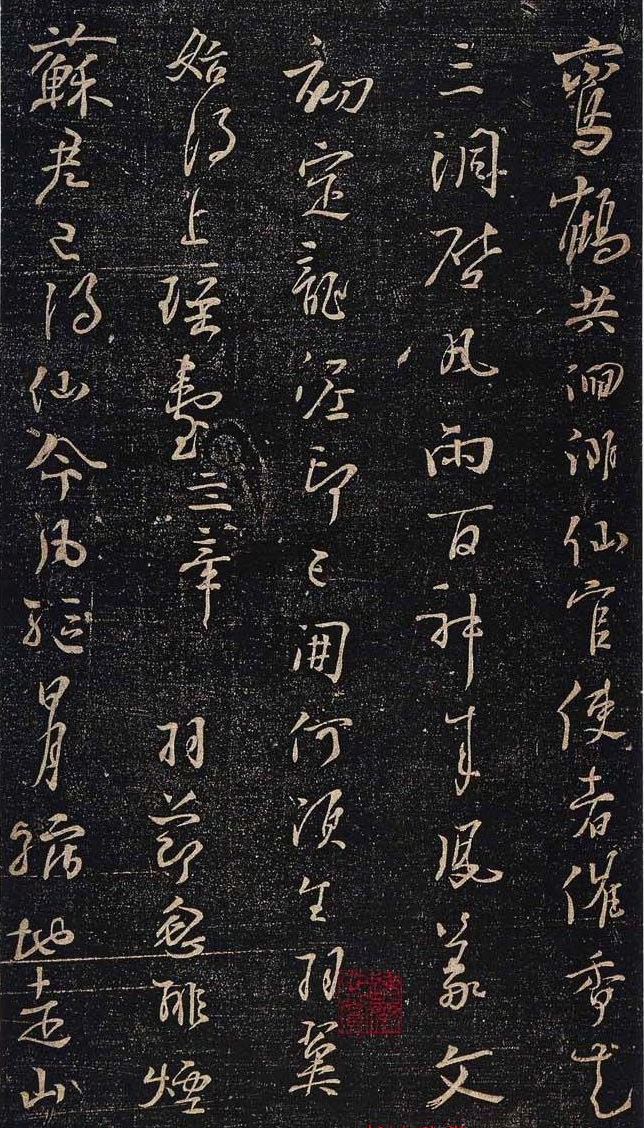 鸞鶴共洄溯仙官使者催香花
三洞啓風雨百神來鳳篆文
初定龍泥印已開何須生羽翼
始得上瑤臺三章 羽節忽排煙
蘇君已得仙命風驅日月縮地走山